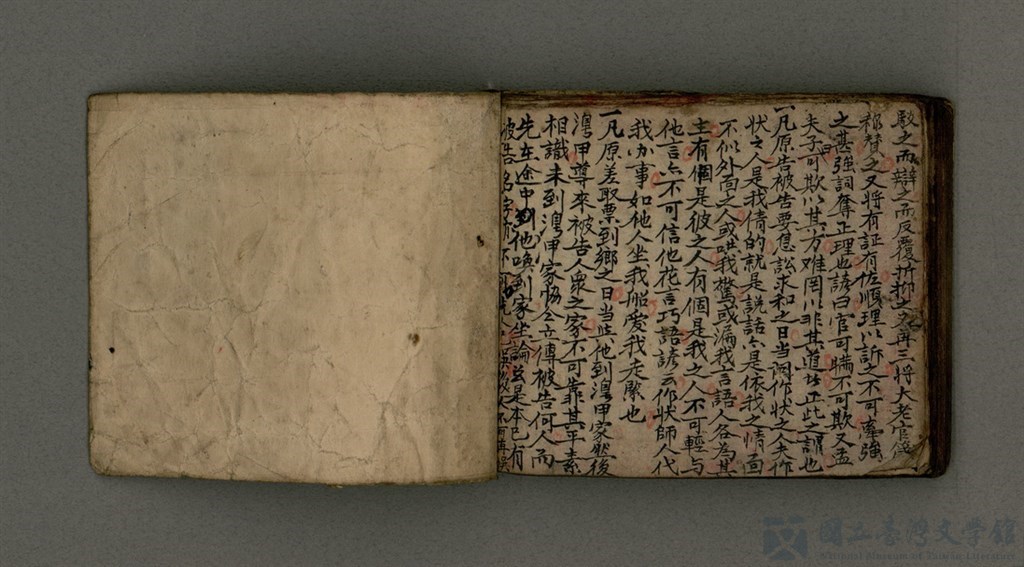 駁之而辯之而反覆折抑之又再三將大老官從
之又將有証有佐順理以訴之不可牽強
之甚強詞奪正理也諺曰官可瞞不可欺又孟
夫子曰可欺以其方难罔以非其道皆正此之謂也
一凡原告被告要息訟求和之日當調作狀之人夫作
状之人是我倩的就是說話亦是依我之情面
不似外面之人或哄我驚或漏我言語人各為其
主有個是彼之人有個是我之人不可輕与
他言亦不可信他花言巧語諺云作狀師人代
我办事如他人坐我船愛我走緊也
一凡原差取票到鄉之日当此他到湯甲家然後
甲尊來被告人衆之家不可靠其平素
相識未到甲家恊仝立傳被告何人而
先在途中到他喚到家坐論茲是本己有
被告名字
國立臺灣文學館
National Museum of Taiwan Literature